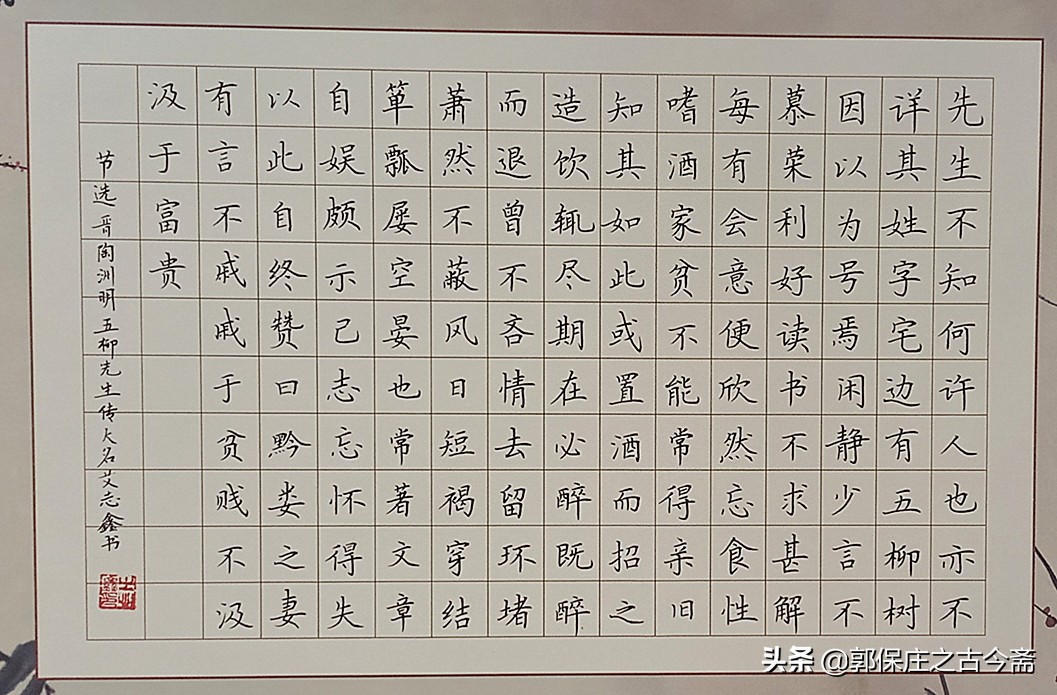 先生不知何许人也亦不
详其姓字宅边有五柳树
因以为号焉闲静少言不
慕荣利好读书不求甚解
每有会意便欣然忘食性
嗜酒家贫不能常得亲旧
知其如此或置酒而招之
造饮辄尽期在必醉既醉
而退曾不吝情去留环堵
萧然不蔽风日短褐穿结
箪瓢屡空晏也常著文章
自娱颇示己志忘怀得失
以此自终赞曰黔娄之妻
有言不戚戚于贫贱不汲
汲于富贵
节选晋陶渊明五柳先生传大名艾志鑫书
头条 @郭保庄之古今斋